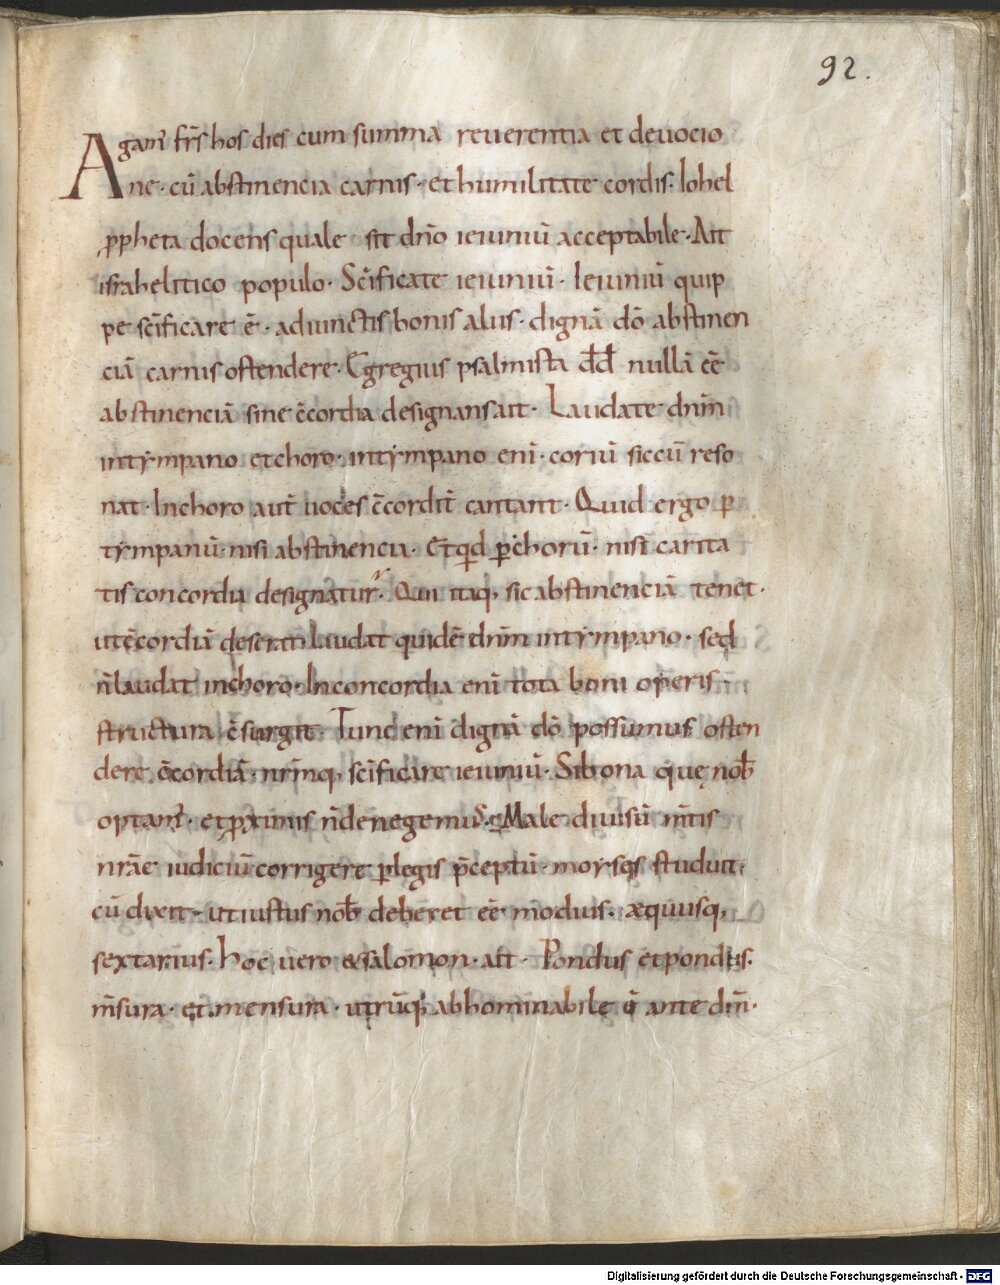 92.
Agam̄ fr̄s hos dies cum summa reuerentia et deuocio
ne · cū abstinencia carnis · et humilitate cordis. Iohel
ꝓpheta docens quale sit dn̄o ieiuniū acceptabile · Ait
israhelitico populo · Sc̄ificate ieiuniū · Ieiuniū quip
pe sc̄ificare ē · adiunctis bonis aliis · dignā dō abstinen
ciā carnis ostendere · Egregius psalmista dd̄ nullā eē
abstinenciā sine c̄cordia designans ait · Laudate dn̄m
in tẏmpano et choro · in tẏmpano enī · coriū siccū reso
nat · In choro aut̄ uoces c̄cordit̄ cantant · Quid ergo ꝑ
tẏmpanū · nisi abstinencia · Et qd ꝑ chorū · nisi carita
tis concordia designatur · Qui itaq, sic abstinenciā tenet ·
ut c̄cordiā deserat · laudat quidē dn̄m in tẏmpano · sed
n̄ laudat in choro · In concordia enī tota boni operis
structura c̄surgit · Tunc enī dignā dō possumus osten
dere c̄cordiā · nr̄mq, sc̄ificare ieiuniū · Si bona quę nob̄
optam̄ · et ꝓximis n̄ denegemus · Male diuisū m̄tis
nr̄ae iudiciū corrigere ꝑ legis p̄ceptū · moẏses studuit,
cū dixit · ut iustus nob̄ deberet eē modius · æquusq,
sextarius · Hoc uero & salomon · ait · Pondus et pondus ·
m̄sura · et mensura · utrūq, abhominabile ē ante dm̄ ·
Digitalisierung gefördert durch die Deutsche Forschungsgemeinschaft - DFG